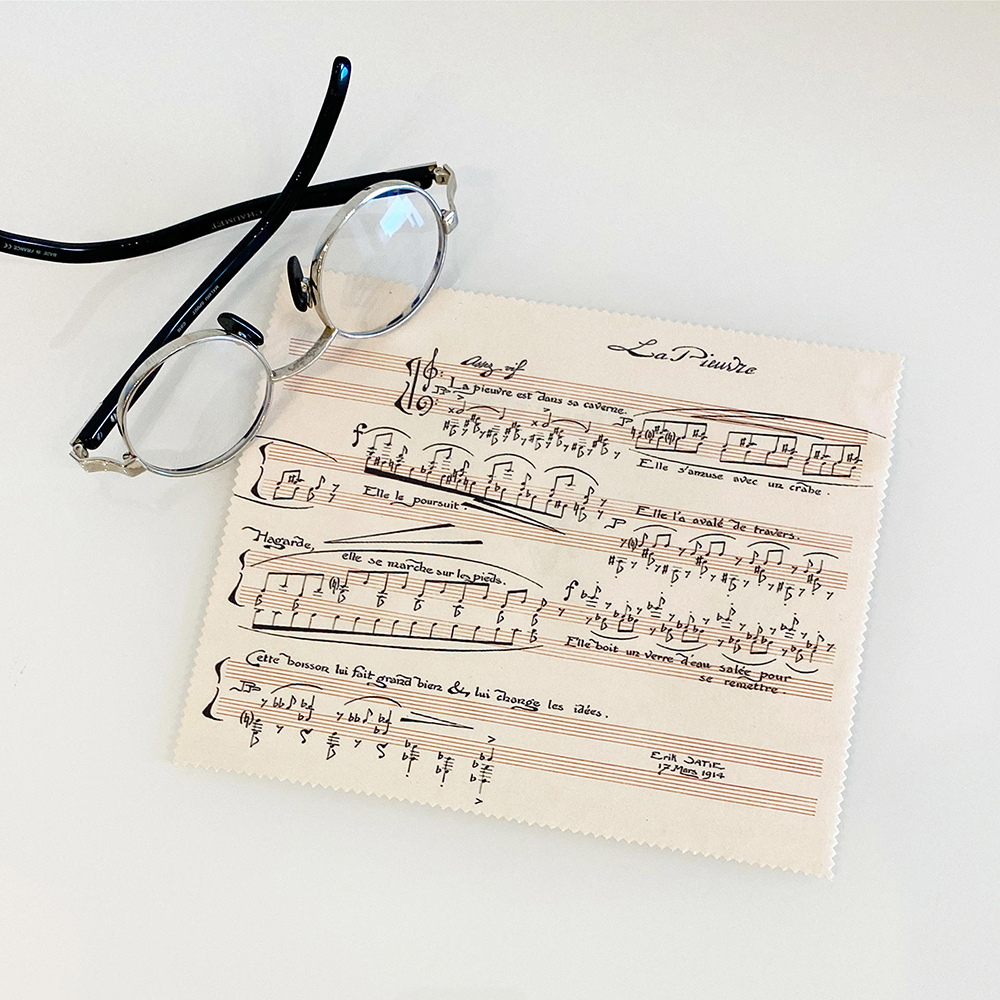 CHAUMET
MADE IN FRANCE CE
La Pieuvre
Assez vif
La pieuvre est dans sa caverne.
Elle s'amuse avec un crabe.
Elle le poursuit.
Elle l'a avalé de travers.
Hagarde,
elle se marche sur les pieds.
Elle boit un verre d'eau salée pour
se remettre.
Cette boisson lui fait grand bien & lui change les idées.
Erik SATIE
17 Mars 1914